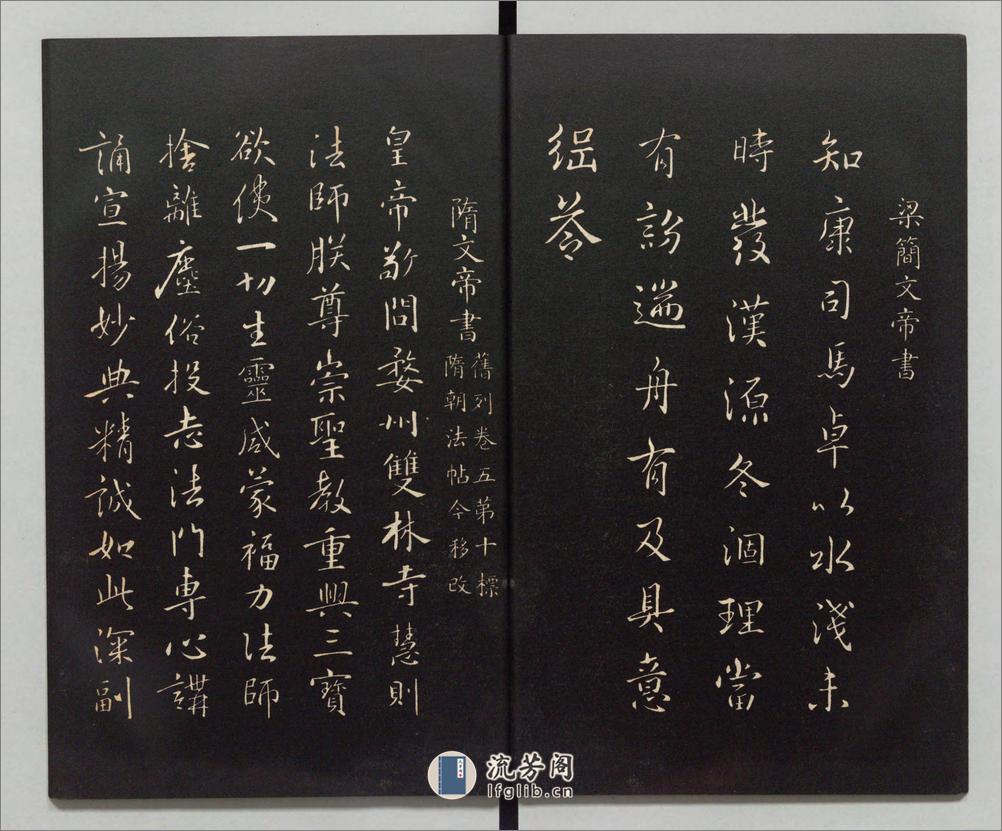 梁簡文帝書
知康司馬卓以水淺未
時發漢源冬涸理當
有訬遄舟有及具意
綱答
隋文帝書
舊列卷五第十標
隋朝法帖今移改
皇帝敬問婺州雙林寺慧則
法師朕尊崇聖教重興三寶
欲使一切生靈咸蒙福力法師
捨離塵俗投志法門專心講
誦宣揚妙典精誠如此深副
流芳阁
lfglib.cn